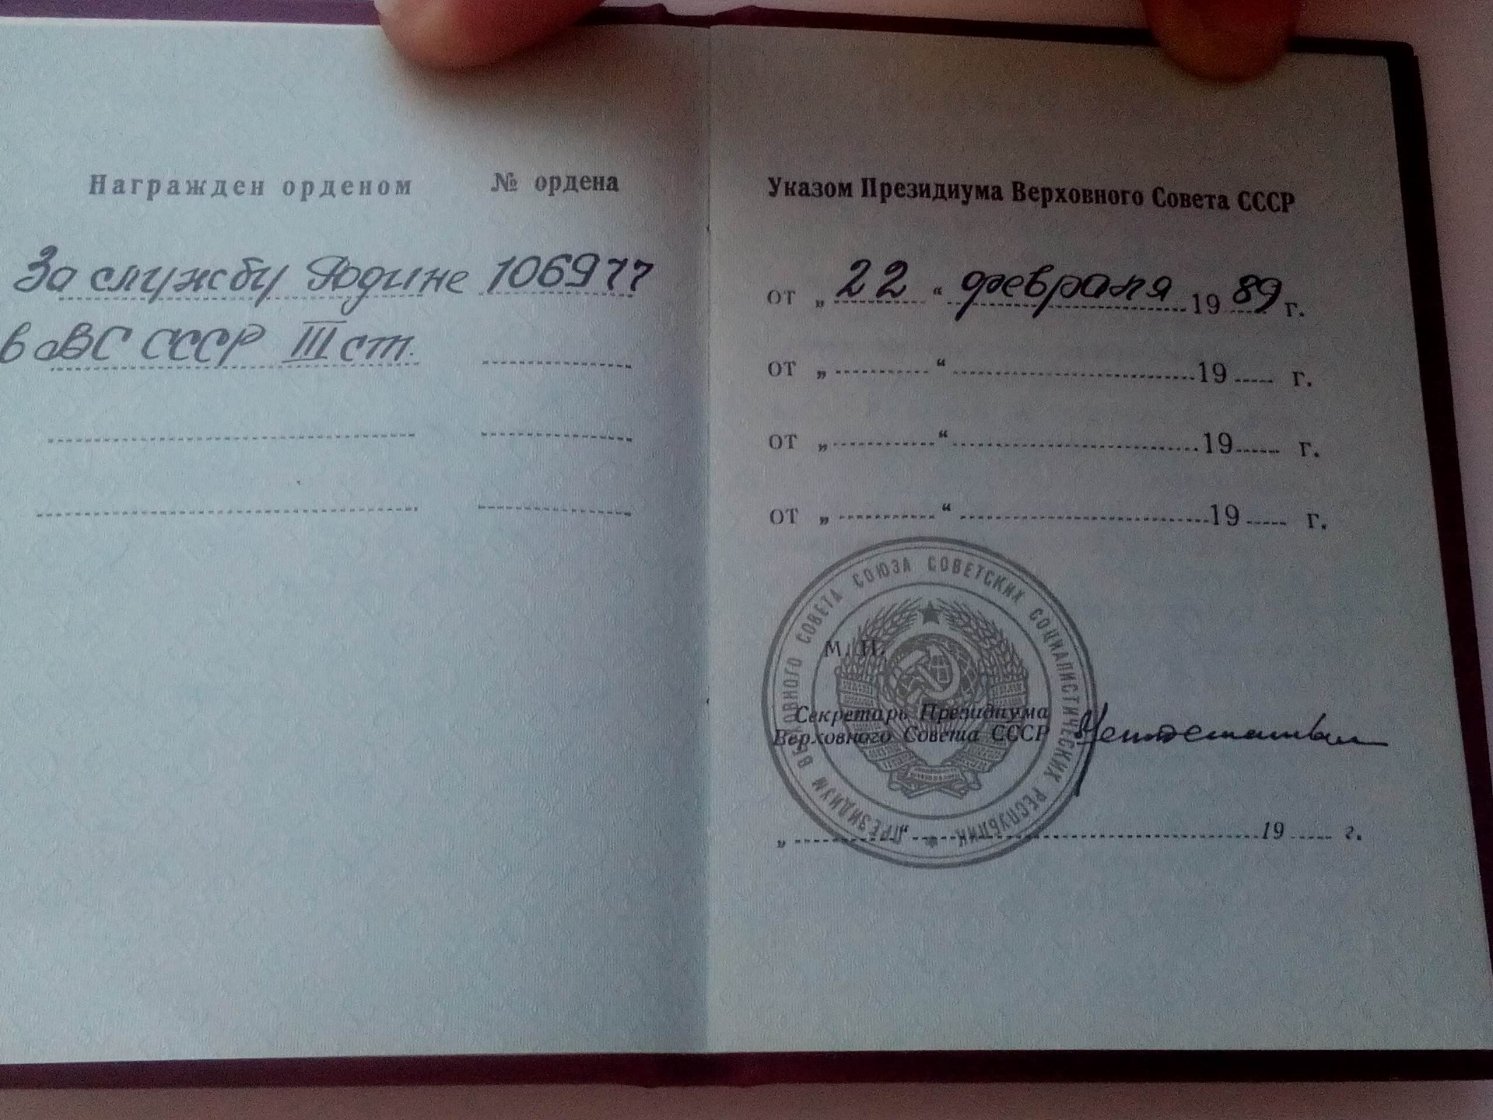 Награжден орденом № ордена
За службу Родине 106977
в ВС СССР III ст.
Указом Президиума Верховного Совета СССР
от „ 22 “ февраля 19 89 г.
от „ “ 19 г.
от „ “ 19 г.
от „ “ 19 г.
ПРЕЗИДИУМ ВЕРХОВНОГО СОВЕТА СОЮЗА СОВЕТСКИХ СОЦИАЛИСТИЧЕСКИХ РЕСПУБЛИК
М. П.
Секретарь Президиума
Верховного Совета СССР
„ “ 19 г.